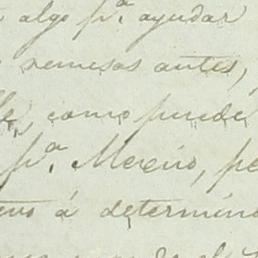 algo p.ª ayudar
remesas antes,
como puede
p.ª Moreno, pe
á determin